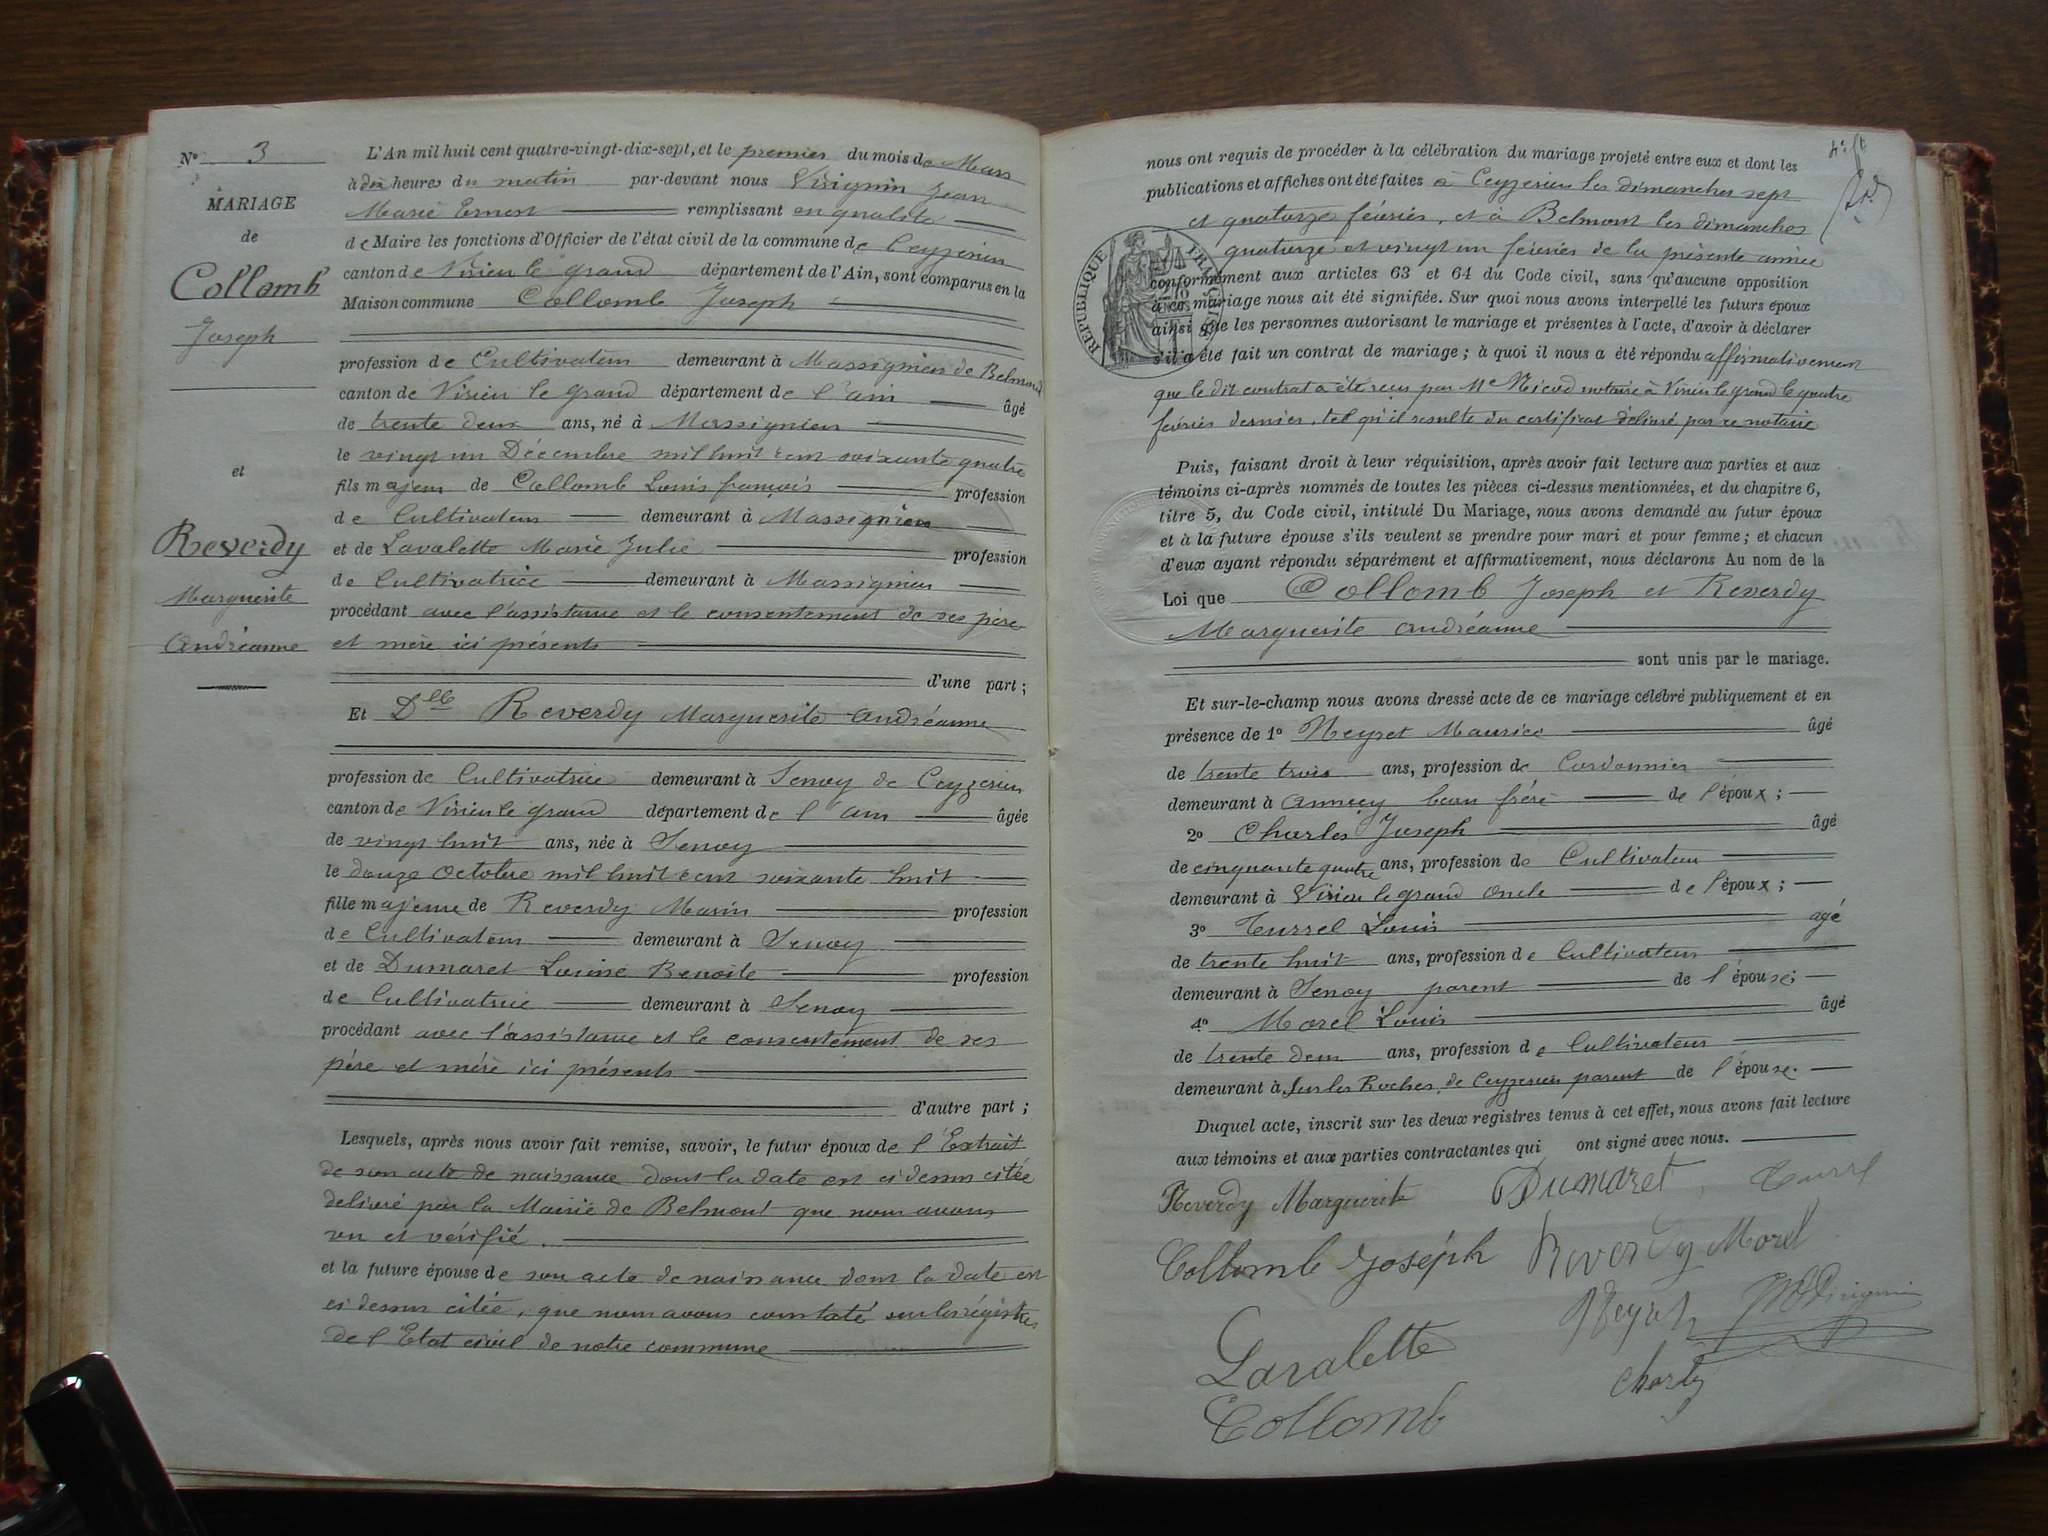 N° 3
MARIAGE
de
Collomb
Joseph
et
Reverdy
Marguerite
Andréanne
L'An mil huit cent quatre-vingt-dix-sept, et le premier du mois de Mars
à dix heures du matin par-devant nous Virignin Jean
Marie Ernest remplissant en qualité
de Maire les fonctions d'Officier de l'état civil de la commune de Ceyzerieu
canton de Virieu le grand département de l'Ain, sont comparus en la
Maison commune Collomb Joseph
profession de Cultivateur demeurant à Massignieu de Belmont
canton de Virieu le grand département de l'ain âgé
de trente deux ans, né à Massignieu
le vingt un Décembre mil huit cent soixante quatre
fils majeur de Collomb Louis françois profession
de Cultivateur demeurant à Massignieu
et de Lavalette Marie Julie profession
de Cultivatrice demeurant à Massignieu
procédant avec l'assistance et le consentement de ses père
et mère ici présents
d'une part ;
Et Dlle Reverdy Marguerite Andréanne
profession de Cultivatrice demeurant à Senoy de Ceyzerieu
canton de Virieu le grand département de l'ain âgée
de vingt huit ans, née à Senoy
le douze Octobre mil huit cent soixante huit
fille majeure de Reverdy Marin profession
de Cultivateur demeurant à Senoy
et de Dumaret Louise Benoite profession
de Cultivatrice demeurant à Senoy
procédant avec l'assistance et le consentement de ses
père et mère ici présents
d'autre part ;
Lesquels, après nous avoir fait remise, savoir, le futur époux de l'Extrait
de son acte de naissance dont la date est ci dessus citée
delivré par la Mairie de Belmont que nous avons
vu et vérifié.
et la future épouse de son acte de naissance dont la date est
ci dessus citée, que nous avons constaté sur les régistres
de l'Etat civil de notre commune
nous ont requis de procéder à la célébration du mariage projeté entre eux et dont les
publications et affiches ont été faites à Ceyzerieu les dimanches sept
et quatorze février, et à Belmont les dimanches
quatorze et vingt un février de la présente année
RÉPUBLIQUE FRANÇAISE
conformément aux articles 63 et 64 du Code civil, sans qu'aucune opposition
à ce mariage nous ait été signifiée. Sur quoi nous avons interpellé les futurs époux
ainsi que les personnes autorisant le mariage et présentes à l'acte, d'avoir à déclarer
s'il a été fait un contrat de mariage ; à quoi il nous a été répondu affirmativement
que le dit contrat a été reçu par Me Nicod notaire à Virieu le grand le quatre
février dernier, tel qu'il resulte du certificat délivré par ce notaire
Puis, faisant droit à leur réquisition, après avoir fait lecture aux parties et aux
témoins ci-après nommés de toutes les pièces ci-dessus mentionnées, et du chapitre 6,
titre 5, du Code civil, intitulé Du Mariage, nous avons demandé au futur époux
et à la future épouse s'ils veulent se prendre pour mari et pour femme ; et chacun
d'eux ayant répondu séparément et affirmativement, nous déclarons Au nom de la
Loi que Collomb Joseph et Reverdy
Marguerite Andréanne
sont unis par le mariage.
Et sur-le-champ nous avons dressé acte de ce mariage célébré publiquement et en
présence de 1° Neyret Maurice âgé
de trente trois ans, profession de Cordonnier
demeurant à Annecy beau frère de l'époux ;
2° Charles Joseph âgé
de cinquante quatre ans, profession de Cultivateur
demeurant à Virieu le grand Oncle de l'époux ;
3° Turrel Louis agé
de trente huit ans, profession de Cultivateur
demeurant à Senoy parent de l'épouse ;
4° Morel Louis âgé
de trente deux ans, profession de Cultivateur
demeurant à Sur les Roches de Ceyzerieu parent de l'épouse.
Duquel acte, inscrit sur les deux registres tenus à cet effet, nous avons fait lecture
aux témoins et aux parties contractantes qui ont signé avec nous.
Reverdy Marguerite Dumaret Turrel
Collomb Joséph Reverdy Morel
Neyret Virignin
Lavalette
Charles
Collomb